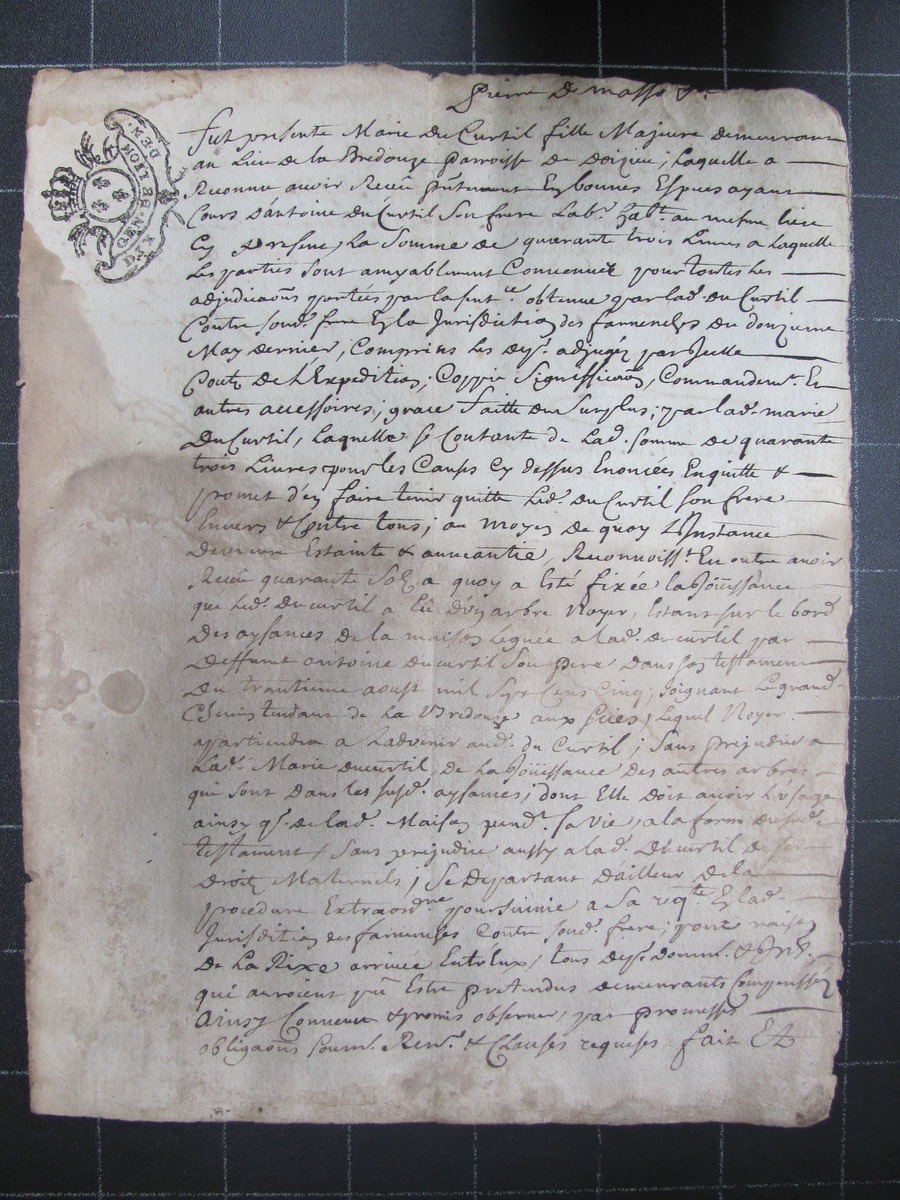 Pierre De masso
GEN. DE LION
DEM
D. IX
Fut presente Marie du Curtil fille Majeure demeurant
au Lieu de la Bredouze parroisse de Doizieu, laquelle a
Reconnu avoir Receu pñtement En bonnes Especes ayant
Cours d'antoine du Curtil Son frere Labr. habt. au mesme lieu
Cy présent, La Somme de quarante trois Livres a Laquelle
Les parties sont amyablement Convenues pour toutes les
adjudicaõns portées par la sentce. obtenue par lad. du Curtil
Contre sond. frere En la Jurisdiction des farnenches du
May dernier, Comprins les adjugez par Jcelle
Coutz de L'Expedition, Coppie Signifficaõn, Commandemt. Et
autres accessoires, grace faitte du Surplus, par lad. marie
Du Curtil, Laquelle se Contante de Lad. somme de quarante
trois Livres pour les Causes Cy dessus Enoncées Enquitte &
promet d'en faire tenir quitte Led. du Curtil son frere
Envers & Contre tous; au moyen de quoy L'Jnstance
Demeure Estainte & anneantie, Reconnoisst. En outre avoir
Receu quarante Solz a quoy a Esté fixée la Joüissance
que Led. Du curtil a Eü d'un arbre Noyer, Estant sur le bord
Des aysances de la maison Leguée a lad. du curtil par
Deffunt antoine du curtil Son pere Dans son testament
Du trantieme aoust mil Sept Cens Cinq, Joignant Le grand
Chemin tendant de La Bredouze aux, Lequel Noyer
appartiendra a L'advenir aud. du Curtil; Sans prejudice a
Lad. Marie du curtil, de La Joüissance des autres arbres
qui sont dans les susd. aysances, dont Elle doit avoir L'usage
ainsy q. de lad. Maison pendt. sa vie, a la forme dusud.
testament, Sans prejudice aussy a lad. Du curtil de ses
Droitz Maternels, Se Departant D'ailleur De la
procedure Extraordre. poursuivie a Sa reqte. En lad.
Jurisdiction des farnenches Contre sond. frere, pour raison
De La Rixe arrivée Entr'eux, tous
qui auroient pû Estre pretendus demeurants Compensséz
Ainsy Convenu & promis observer, par promesses
obligaõns & Clauses requises fait Et